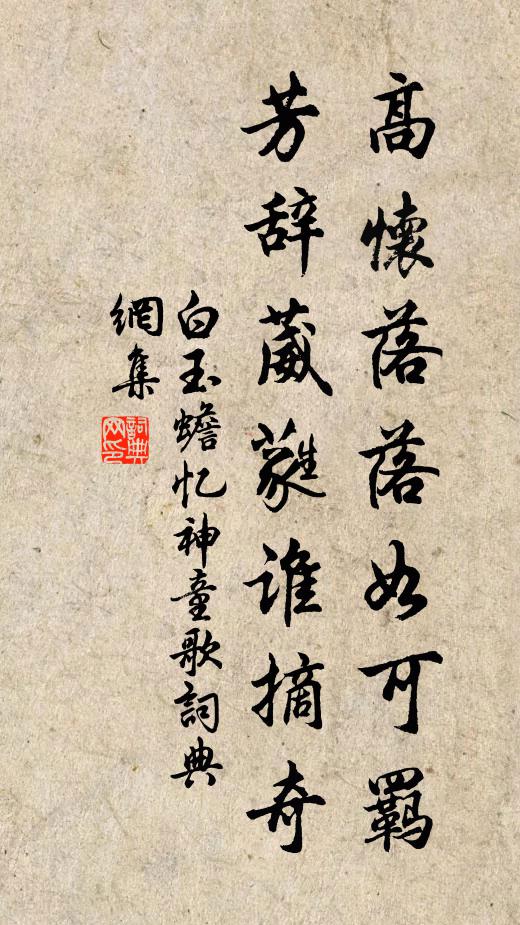 高懷落落如可羈
芳辞葳蕤谁摘奇
白玉蟾忆神童歌詞典
網集
詞典网印